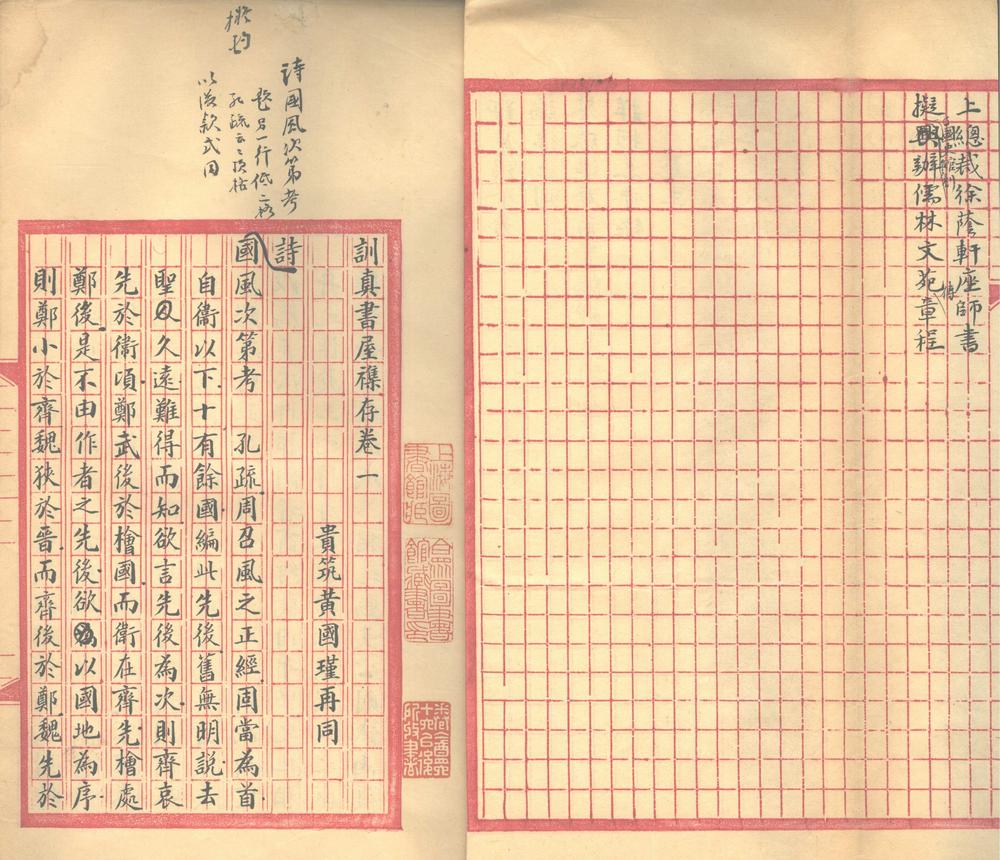 上總裁徐蔭軒座師書
擬興辦儒林文苑章程
傳
擬均
詩國風次第考
題另一行低二格
孔疏云云頂格
以後款式同
訓真書屋襍存卷一
貴筑黃國瑾再同
詩
國風次第考 孔疏周召風之正經固當為首
自衛以下十有餘國編此先後舊無明說去
聖久遠難得而知欲言先後為次則齊哀
先於衛頃鄭武後於檜國而衛在齊先檜處
鄭後是不由作者之先後欲以國地為序
則鄭小於齊魏狹於晉而齊後於鄭魏先於
上海圖書館藏